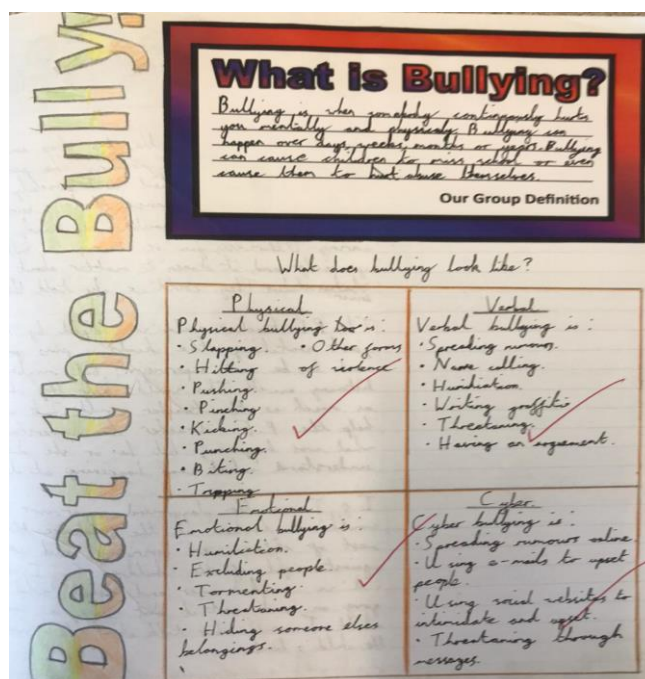 Beat the Bully
What is Bullying?
Bullying is when somebody continously hurts
you mentally and physicaly. Bullying can
happen over days, weeks, months or years. Bullying
can cause children to miss school or even
cause them to hurt abuse themselves.
Our Group Definition
What does bullying look like?
Physical
Physical bullying is:
• Slapping. • Other forms
• Hitting of violence
• Pushing.
• Pinching
• Kicking.
• Punching.
• Biting.
• Tripping
Verbal
Verbal bullying is:
• Spreading rumours.
• Name calling.
• Humiliation.
• Writing graffitie
• Threatening.
• Having an arguement.
Emotional
Emotional bullying is:
• Humiliation.
• Excluding people.
• Tormenting.
• Threatening.
• Hiding someone elses
belongings.
Cyber.
Cyber bullying is:
• Spreading rumours online.
• Using e-mails to upset
people.
• Using social websites to
intimidate and upset.
• Threatening through
messages